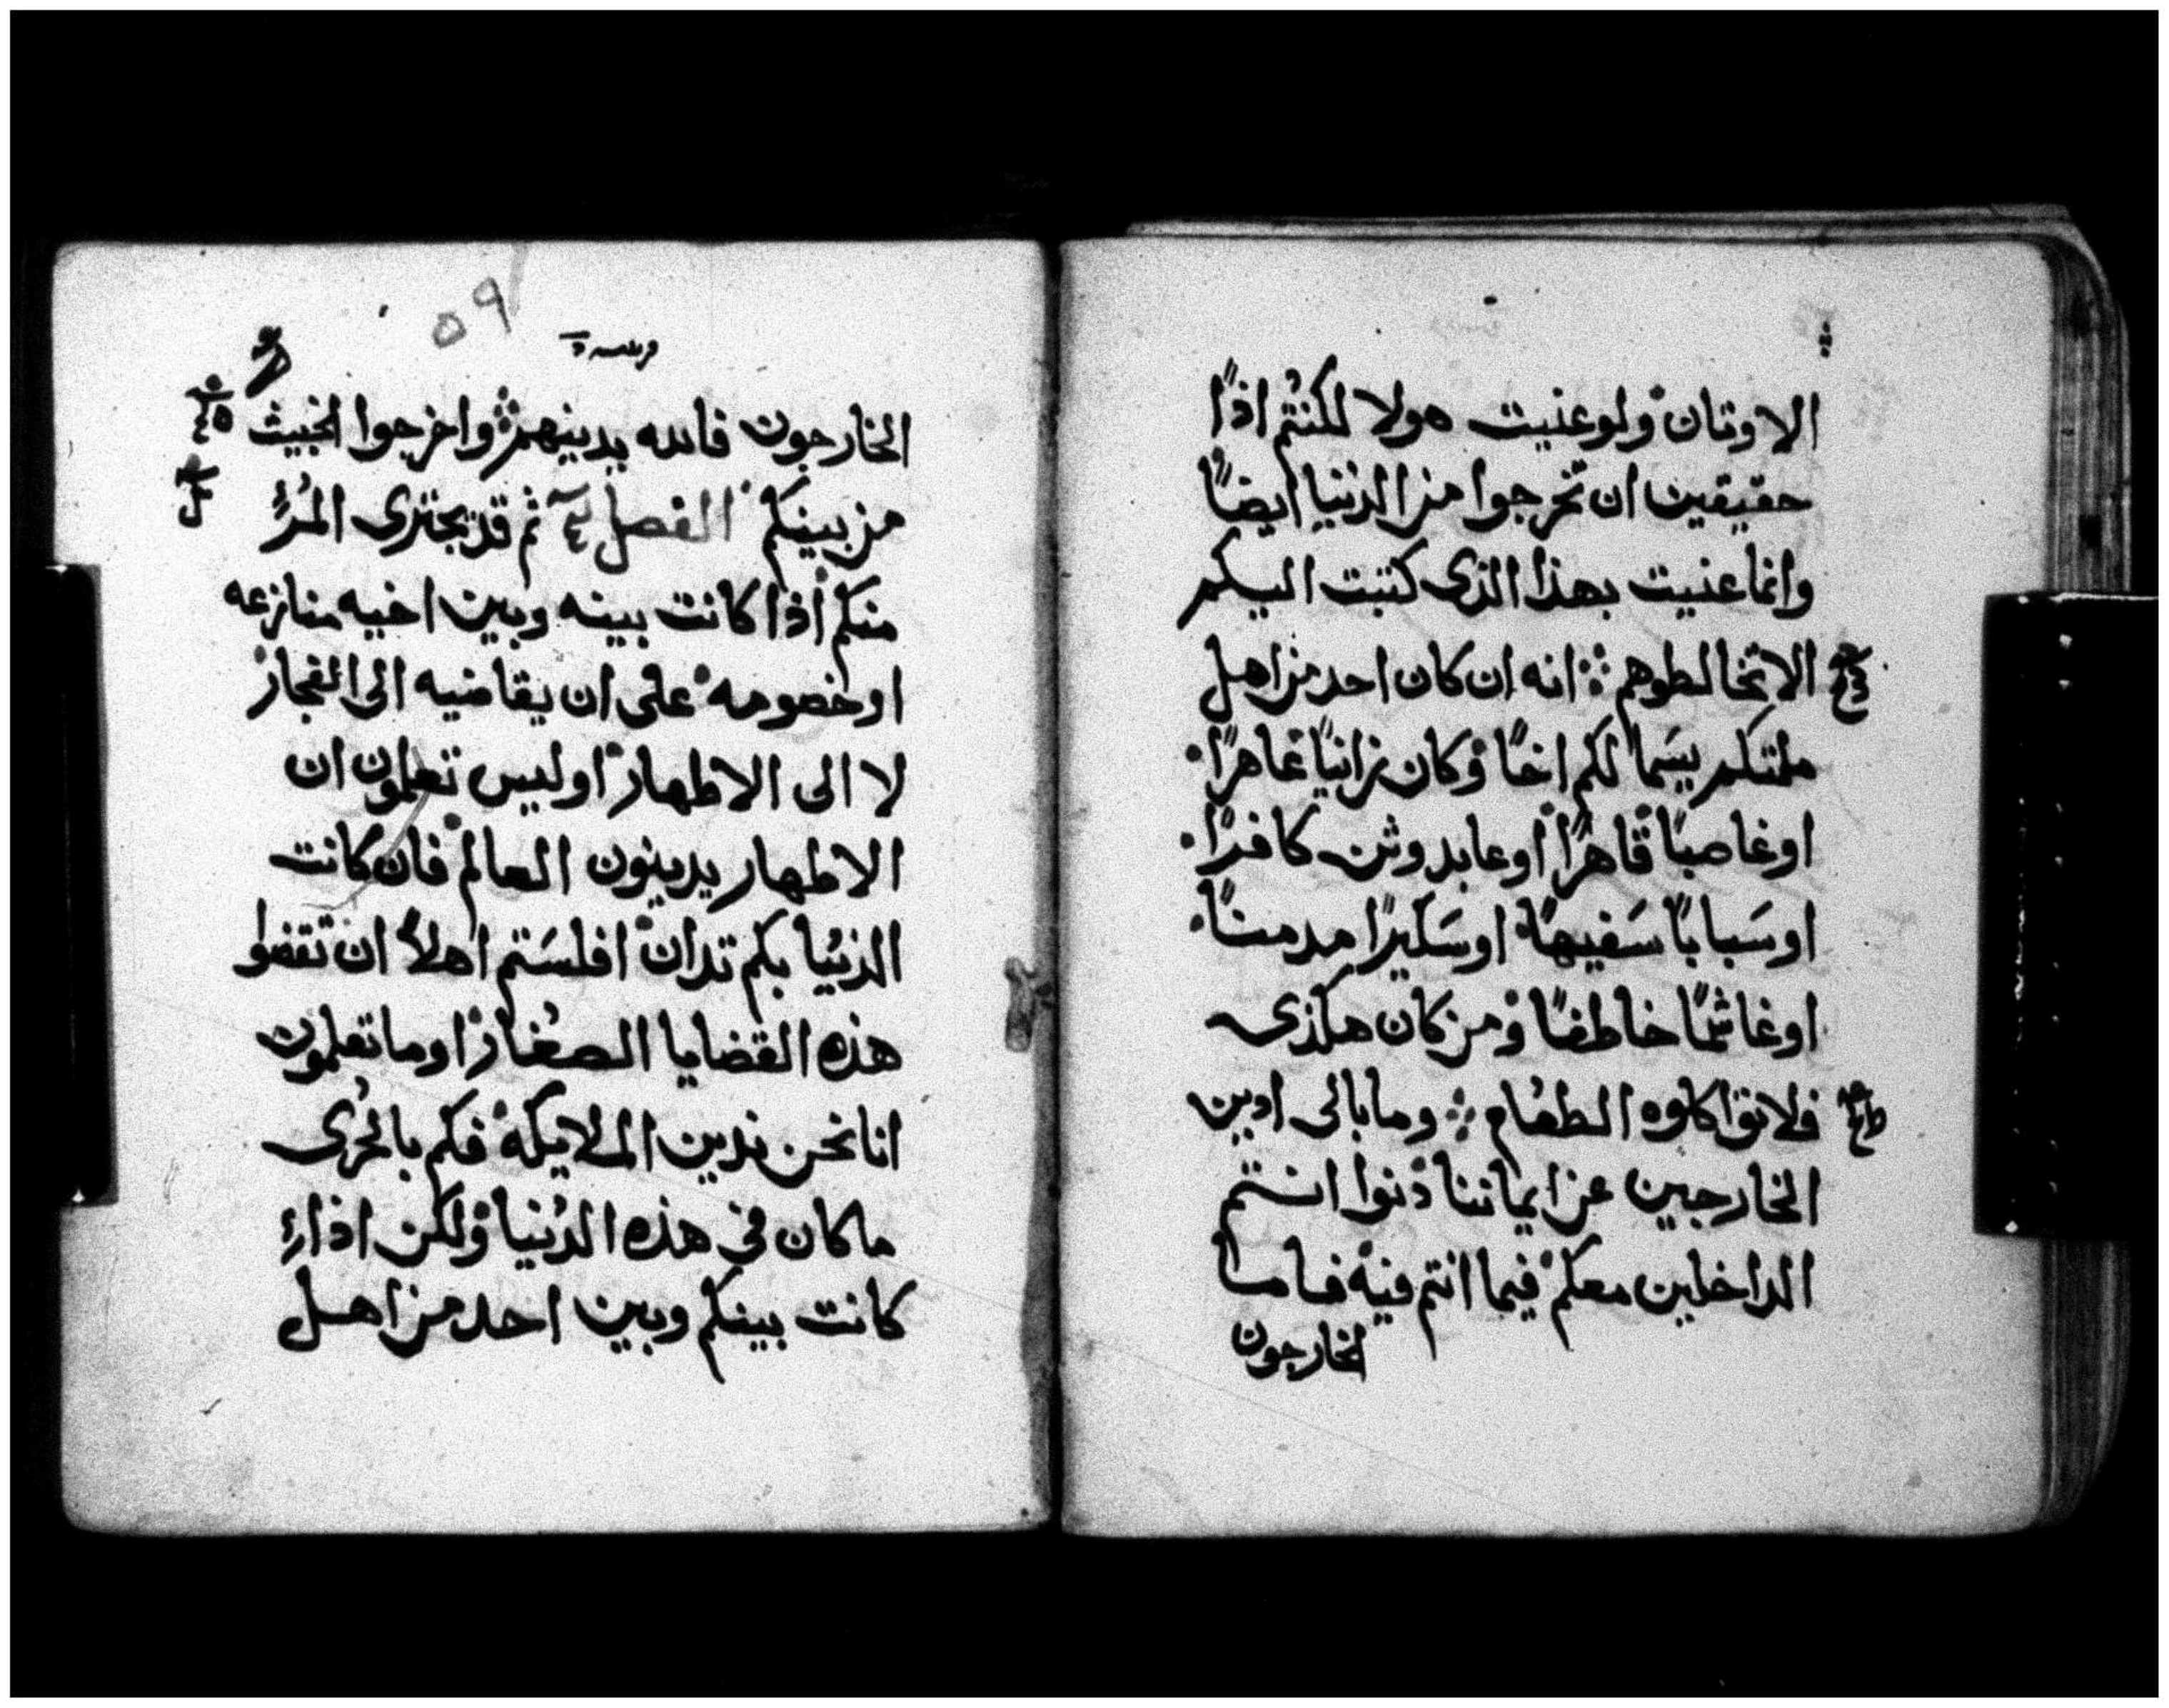 الاوتان ولو عنيت هولا لكنتم اذًا
حقيقين ان تخرجوا من الدنيا ايضًا
وانما عنيت بهذا الذي كتبت اليكم
الا تخالطوهم انه ان كان احد من اهل
ملتكم يسَما لكم اخًا وكان زانيًا عاهرًا
او غاصبًا قاهرًا او عابد وثن كافرًا
او سَبابًا سَفيهًا او سَكيرًا مدمنًا
او غاشمًا خاطفًا ومن كان هكذى
فلا تواكلوه الطعام وما بالى ادين
الخارجين عن ايماننا دنوا انتم
الداخلين معكم فيما انتم فيه فاما
الخارجون
٥٩
الخارجون فالله يدينهم واخرجوا الخبيث
من بينكم الفصل ثم قد يجترى المرُ
منكم اذا كانت بينه وبين اخيه منازعه
او خصومه على ان يقاضيه الى الفجار
لا الى الاطهار اوليس تعلمون ان
الاطهار يدينون العالم فان كانت
الدنيُا بكم تدان افلسَتم اهلاً ان تقضوا
هذه القضايا الصغار اوما تعلمون
انا نحن ندين الملايكه فكم بالحُرى
ما كان في هذه الدنيا ولكن اذا
كانت بينكم وبين احد من اهل